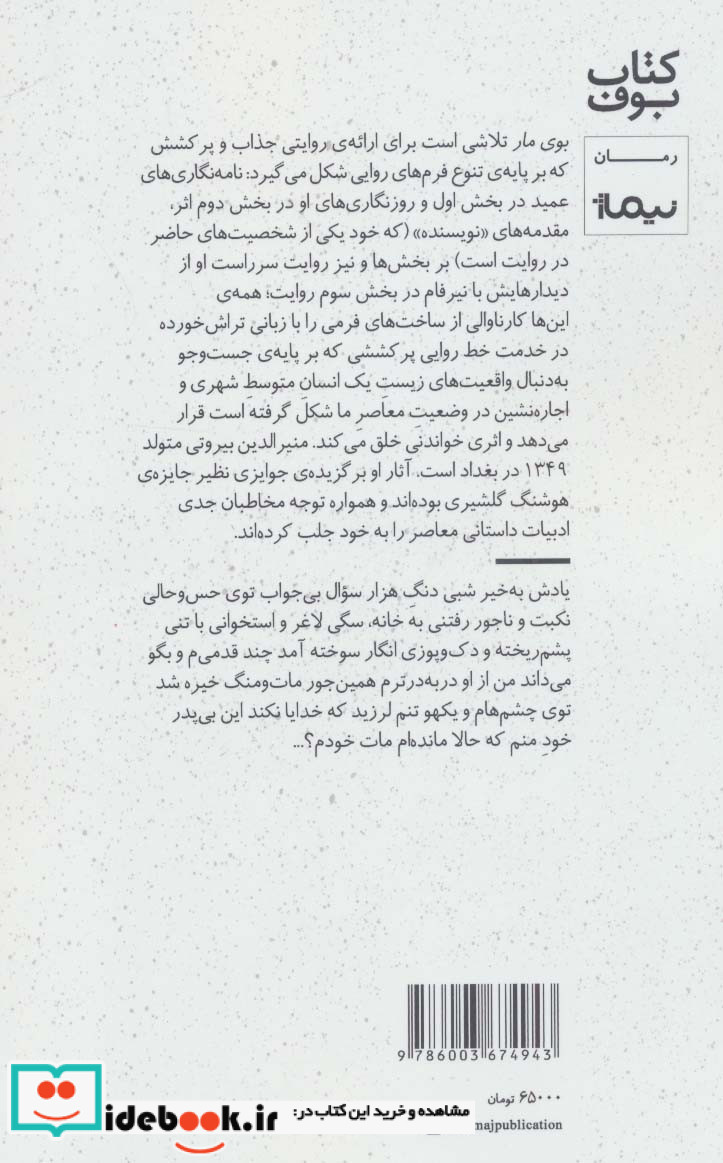 کتاب
بوف
رمـــان
نیماژ
بوی مار تلاشی است برای ارائه‌ی روایتی جذاب و پرکشش
که بر پایه‌ی تنوع فرم‌های روایی شکل می‌گیرد: نامه‌نگاری‌های
عمید در بخش اول و روزنگاری‌های او در بخش دوم اثر،
مقدمه‌های «نویسنده» (که خود یکی از شخصیت‌های حاضر
در روایت است) بر بخش‌ها و نیز روایت سرراست او از
دیدارهایش با نیرفام در بخش سوم روایت؛ همه‌ی
این‌ها کارناوالی از ساخت‌های فرمی را با زبانی تراش‌خورده
در خدمت خط روایی پرکششی که بر پایه‌ی جست‌وجو
به‌دنبال واقعیت‌های زیستِ یک انسانِ متوسطِ شهری و
اجاره‌نشین در وضعیتِ معاصرِ ما شکل گرفته است قرار
می‌دهد و اثری خواندنی خلق می‌کند. منیرالدین بیروتی متولد
۱۳۴۹ در بغداد است. آثار او برگزیده‌ی جوایزی نظیر جایزه‌ی
هوشنگ گلشیری بوده‌اند و همواره توجه مخاطبان جدی
ادبیات داستانی معاصر را به خود جلب کرده‌اند.
یادش به‌خیر شبی دنگِ هزار سؤال بی‌جواب توی حس‌وحالی
نکبت و ناجور رفتنی به خانه، سگی لاغر و استخوانی با تنی
پشم‌ریخته و دک‌وپوزی انگار سوخته آمد چند قدمی‌م و بگو
می‌داند من از او دربه‌درترم همین‌جور مات‌ومنگ خیره شد
توی چشم‌هام و یکهو تنم لرزید که خدایا نکند این بی‌پدر
خودِ منم که حالا مانده‌ام مات خودم؟...
9 786003 674943
۶۵۰۰۰ تومان
majpublication
مشاهده و خرید این کتاب در:
idebook.ir